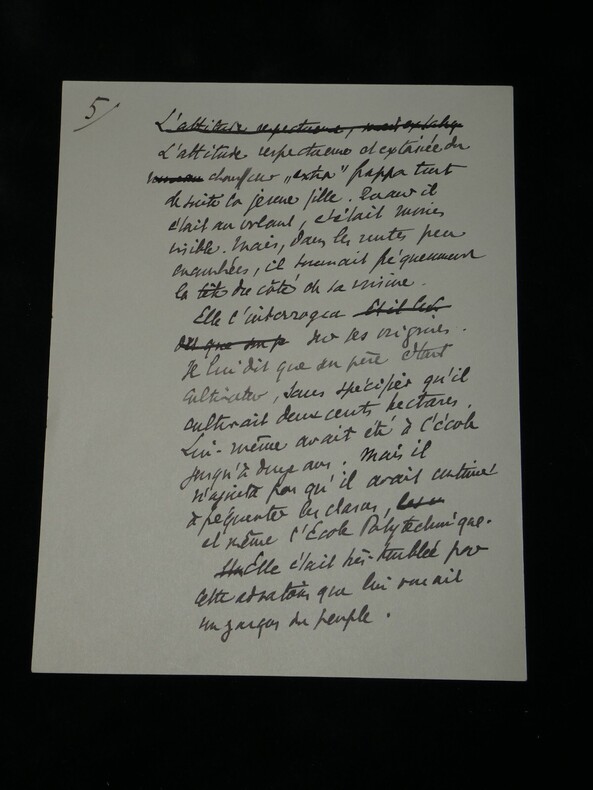 5/
L'attitude respectueuse, mais extasiée
L'attitude respectueuse et extasiée du
nouveau chauffeur „extra" frappa tout
de suite la jeune fille. Quand il
était au volant, c'était moins
visible. Mais, dans les routes peu
encombrées, il tournait fréquemment
la tête du côté de sa voisine.
Elle l'interrogea et il lui
dit que son p sur ses origines.
Il lui dit que son père était
cultivateur, sans spécifier qu'il
cultivait deux cents hectares.
Lui-même avait été à l'école
jusqu'à douze ans. Mais il
n'ajouta pas qu'il avait continué
à fréquenter les classes, les
et même l'Ecole Polytechnique.
Elle était très troublée par
cette adoration que lui vouait
un garçon du peuple.